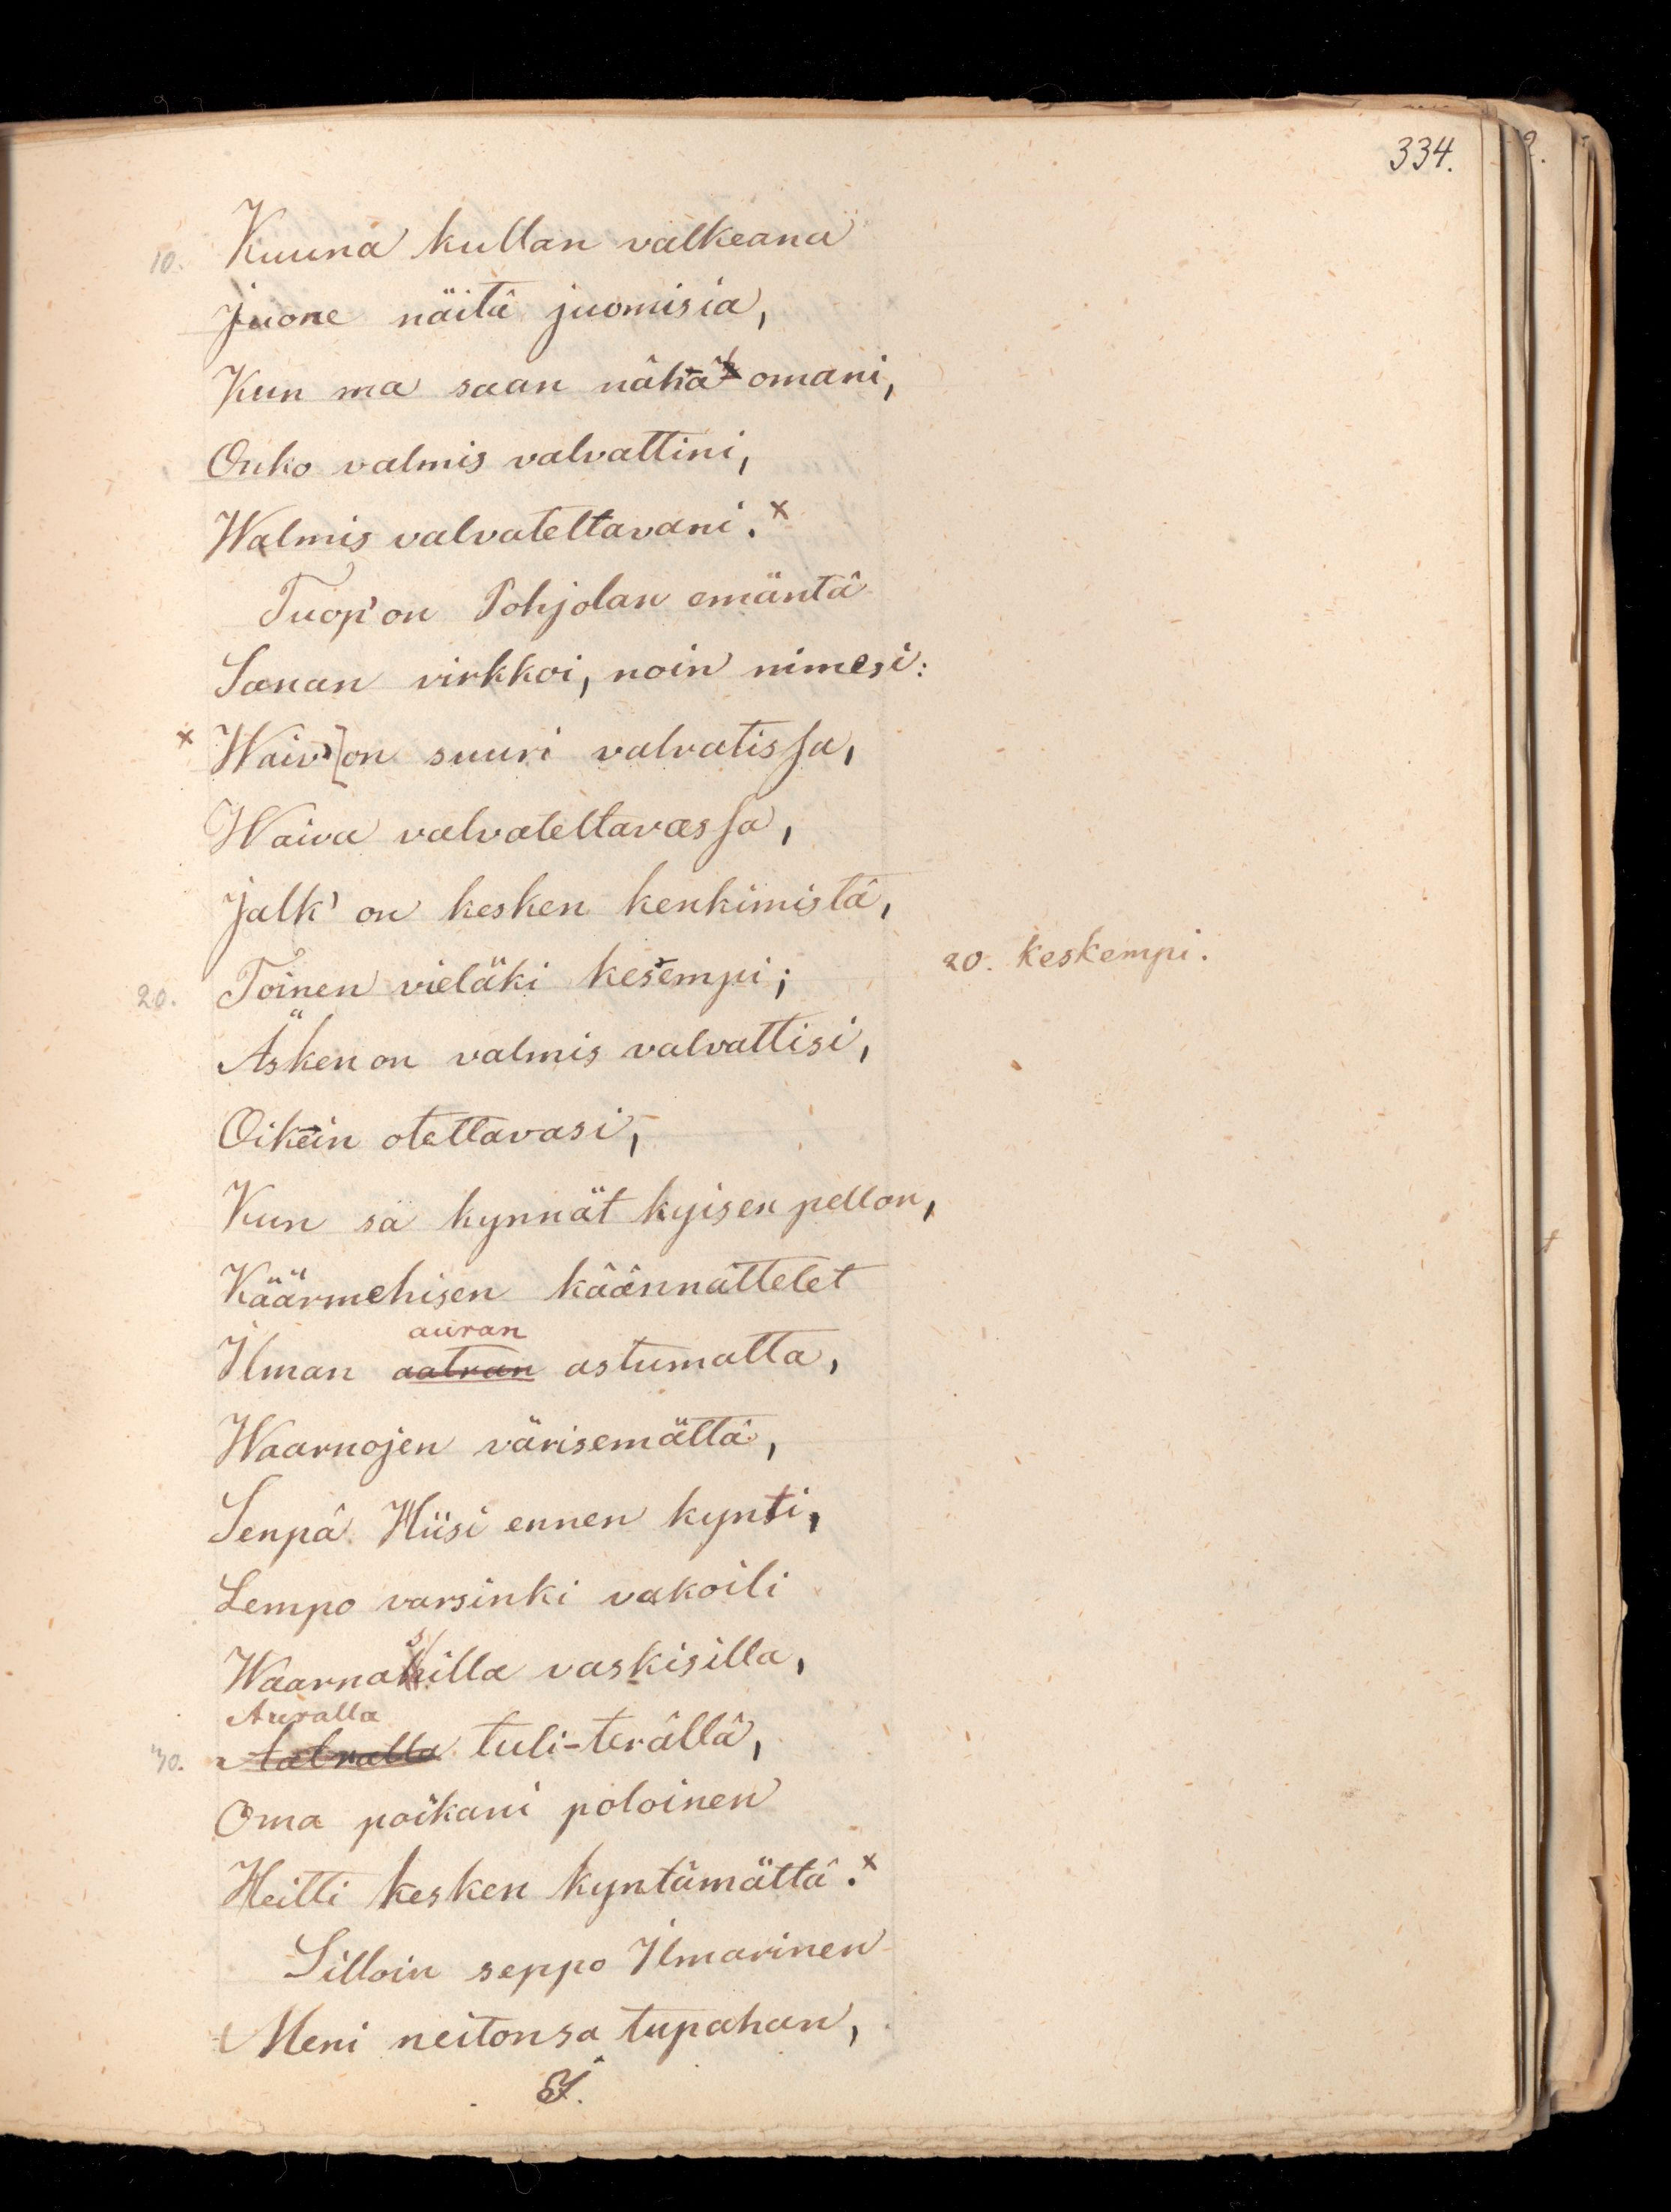 334.
10. Kuuna kullan valkeana
Juone näitä juomisia,
Kun ma saan nähä omani,
Onko valmis valvattini,
Walmis valvateltavani. x
Tuop' on Pohjolan emäntä
Sanan virkkoi, noin nimesi:
x Waiv' [on suuri valvatissa,
Waiva valvateltavassa,
Jalk' on kesken kenkimistä,
20. Toinen vieläki kesempi; 20. keskempi.
Äsken on valmis valvattisi,
Oikein otettavasi,
Kun sä kynnät kyisen pellon,
Käärmehisen käännättelet
auran
Ilman aatran astumatta,
Waarnojen värisemättä,
Senpä Hiisi ennen kynti,
Lempo varsinki vakoili
Waarnasilla vaskisilla,
Auralla
30. Aatralla tuli-terällä,
Oma poikani poloinen
Heitti kesken kyntämättä. x
Silloin seppo Ilmarinen
Meni neitonsa tupahan,